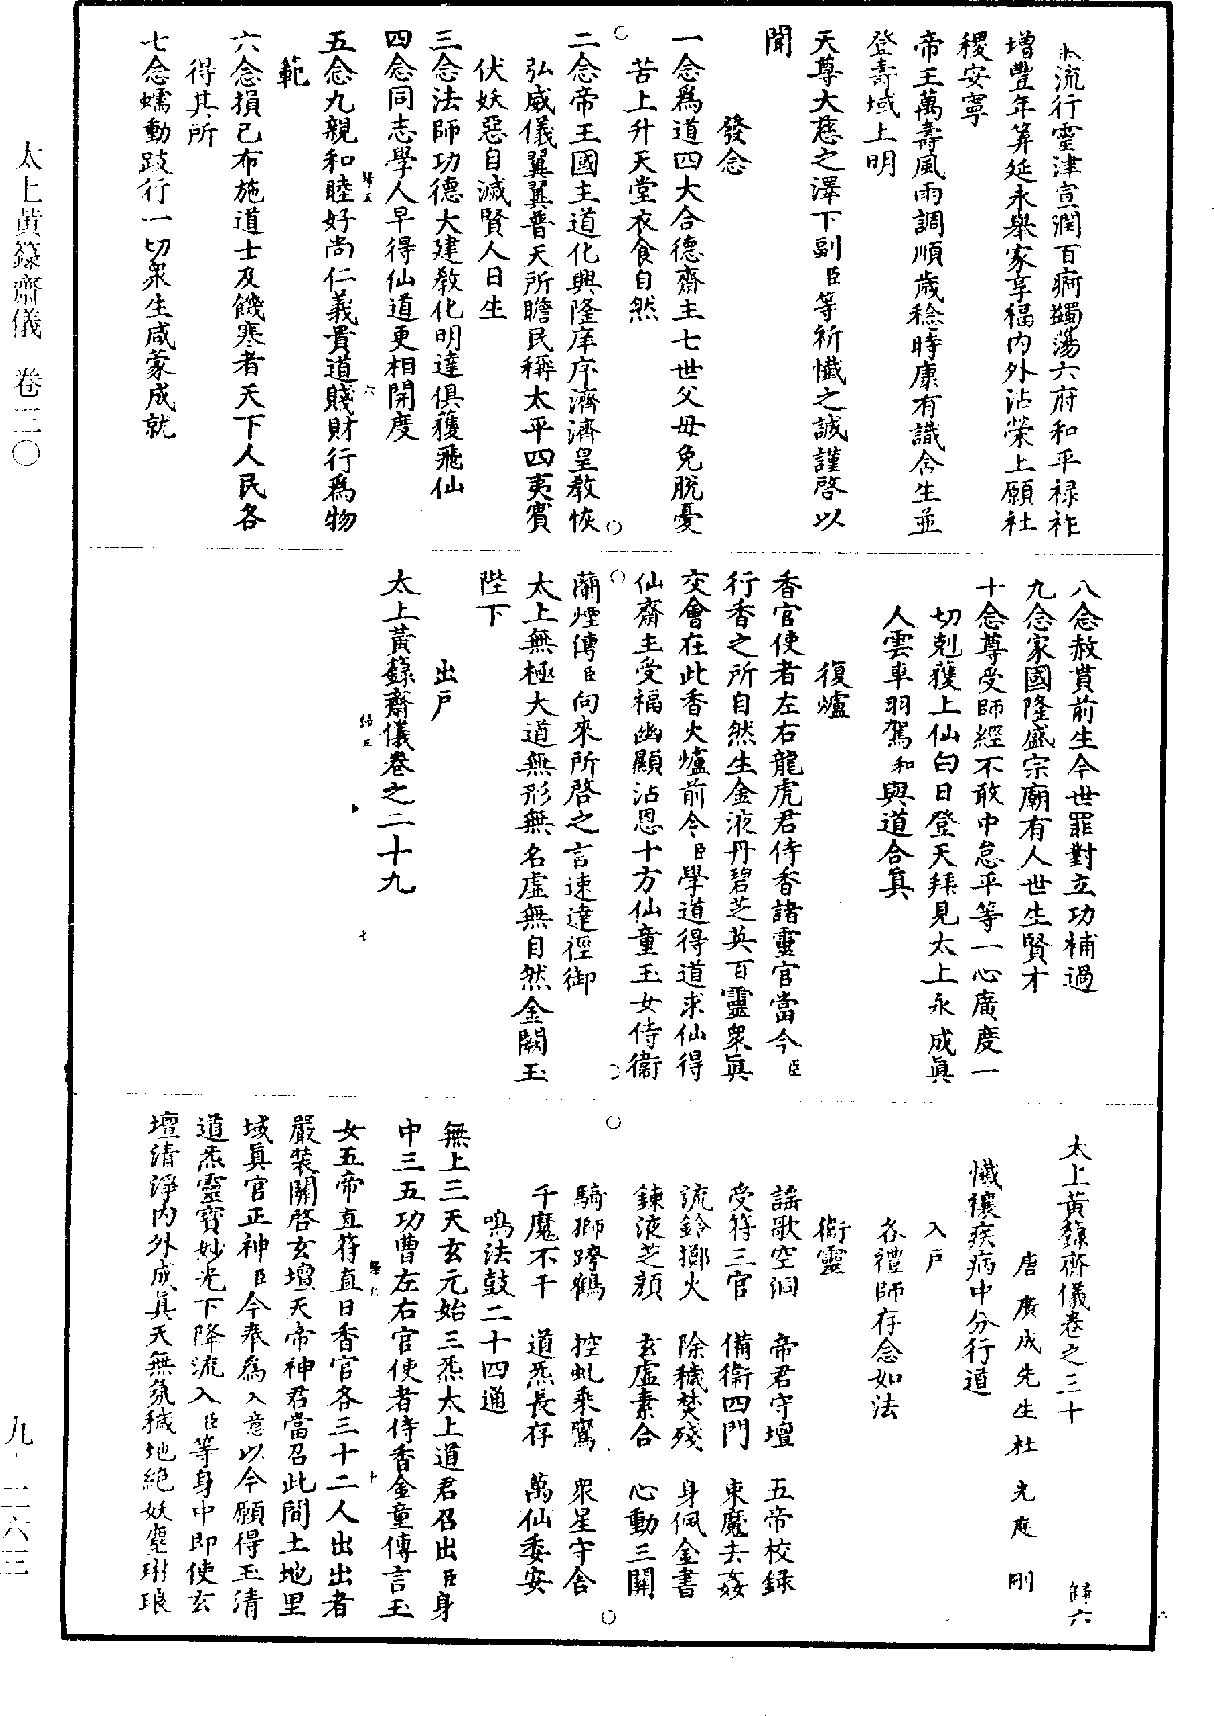 流行靈津宣潤百痾蠲蕩六府和平祿祚
增豐年筭延永舉家享福內外沾榮上願社
稷安寧
帝王萬壽風雨調順歲稔時康有識含生並
登壽域上明
天尊大慈之澤下副臣等祈懺之誠謹啓以
聞
發念
一念爲道四大合德齋主七世父母免脫憂
苦上升天堂衣食自然
二念帝王國主道化興隆庠序濟濟皇教恢
弘威儀翼翼普天所瞻民稱太平四夷賓
伏妖惡自滅賢人日生
三念法師功德大建教化明達俱獲飛仙
四念同志學人早得仙道更相開度
五念九親和睦好尚仁義貴道賤財行爲物
範
六念損己布施道士及饑寒者天下人民各
得其所
七念蠕動跂行一切衆生咸蒙成就
八念赦貰前生今世罪對立功補過
九念家國隆盛宗廟有人世生賢才
十念尊受師經不敢中怠平等一心廣度一
切剋獲上仙白日登天拜見太上永成眞
人雲車羽駕和與道合眞
復爐
香官使者左右龍虎君侍香諸靈官當今臣
行香之所自然生金液丹碧芝英百靈衆眞
交會在此香火爐前令臣學道得道求仙得
仙齋主受福幽顯沾恩十方仙童玉女侍衛
蘭煙傳臣向來所啓之言速達徑御
太上無極大道無形無名虛無自然金闕玉
陛下
出戶
太上黃籙齋儀卷之二十九
太上黃籙齋儀卷之三十
唐廣成先生杜光庭刪
懺禳疾病中分行道
入戶
各禮師存念如法
衛靈
謠歌空洞 帝君守壇 五帝校錄
受符三官 備衛四門 束魔去姦
流鈴擲火 除穢焚殘 身佩金書
鍊液芝顏 玄虛素合 心動三關
騎獅蹲鶴 控虬乘鸞 衆星守舍
千魔不干 道炁長存 萬仙委安
鳴法鼓二十四通
無上三天玄元始三炁太上道君召出臣身
中三五功曹左右官使者侍香金童傳言玉
女五帝直符直日香官各三十二人出出者
嚴裝關啓玄壇天帝神君當召此間土地里
域眞官正神臣今奉爲入意以今願得玉清
道炁靈寶妙光下降流入臣等身中即使玄
壇清淨內外成眞天無氛穢地絶妖塵琳琅
太上黃籙齋儀 卷三〇
九－二六三